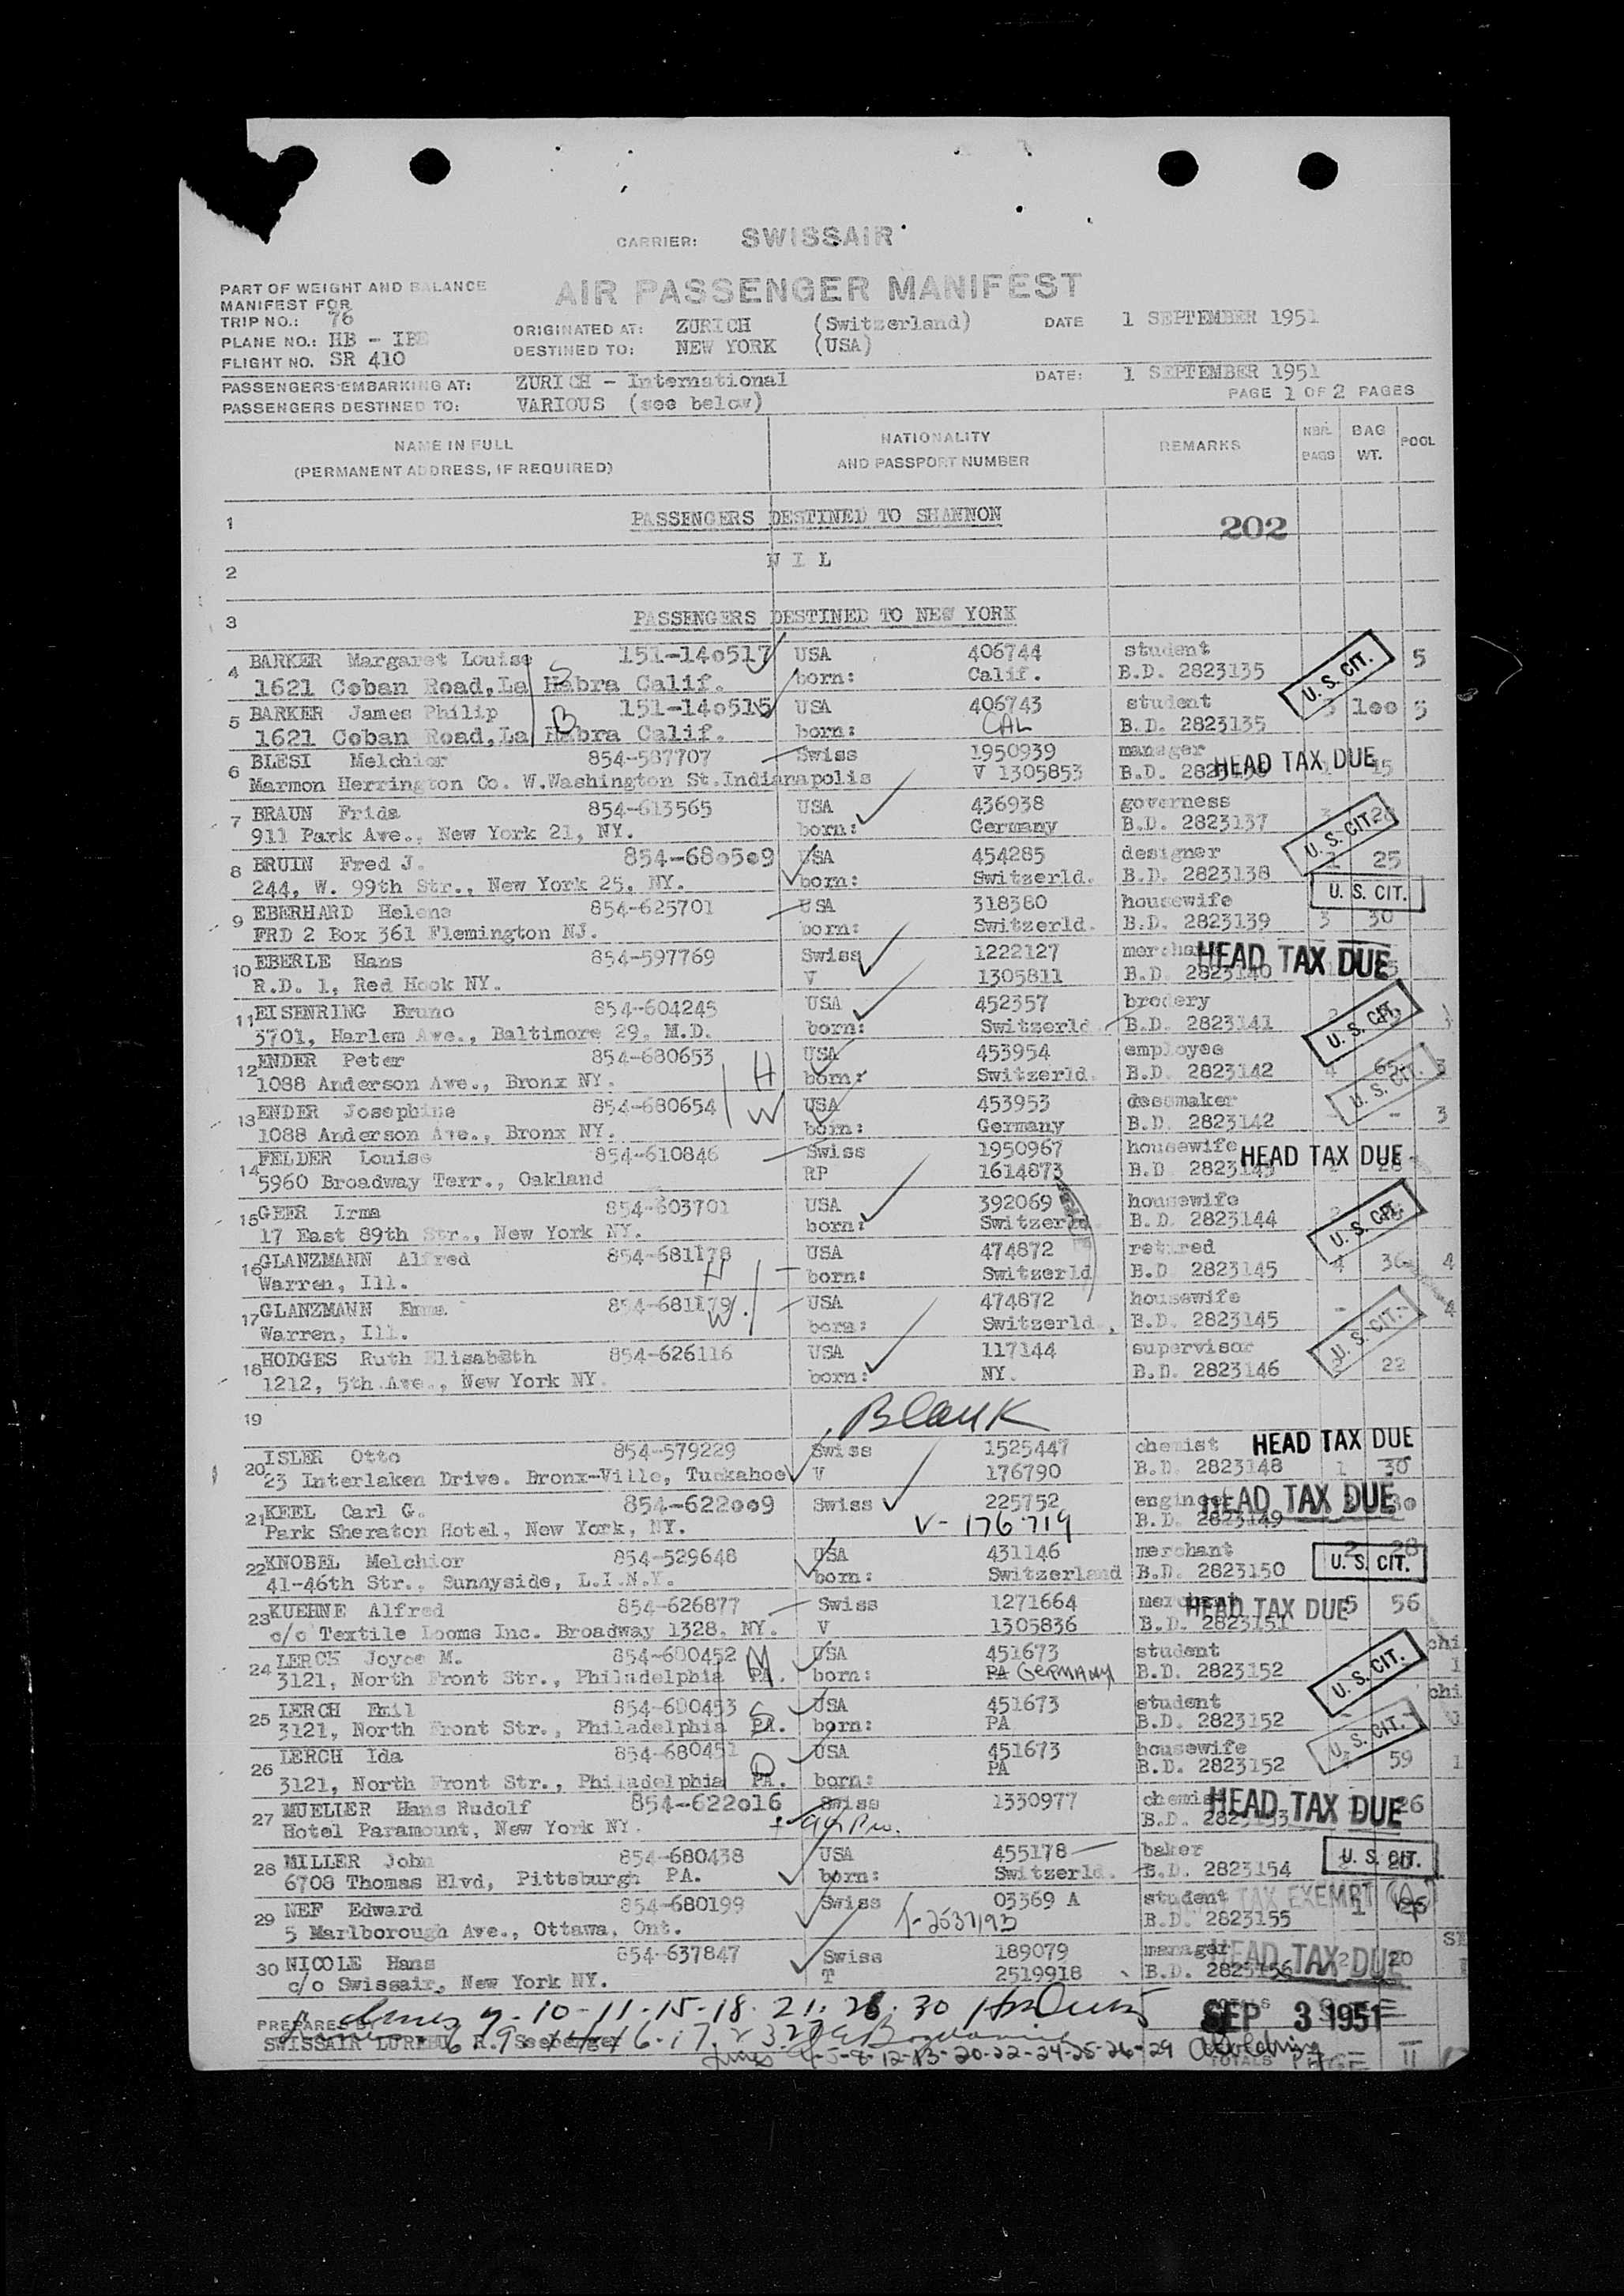 CARRIER: SWISSAIR
AIR PASSENGER MANIFEST
PART OF WEIGHT AND BALANCE
MANIFEST FOR
TRIP NO.: 76
PLANE NO.: HB - IBE
FLIGHT NO. SR 410
ORIGINATED AT: ZURICH (Switzerland) DATE 1 SEPTEMBER 1951
DESTINED TO: NEW YORK (USA)
PASSENGERS EMBARKING AT: ZURICH - International DATE: 1 SEPTEMBER 1951
PASSENGERS DESTINED TO: VARIOUS (see below) PAGE 1 OF 2 PAGES
NAME IN FULL
(PERMANENT ADDRESS, IF REQUIRED)
NATIONALITY
AND PASSPORT NUMBER
REMARKS
NBR. BAGS
BAG WT.
POOL
1 PASSENGERS DESTINED TO SHANNON 202
2 N I L
3 PASSENGERS DESTINED TO NEW YORK
4 BARKER Margaret Louise 151-140517 USA 406744 student U. S. CIT. 5
1621 Coban Road, La Habra Calif. born: Calif. B.D. 2823135
5 BARKER James Philip B 151-140515 USA 406743 student 3 100 5
1621 Coban Road, La Habra Calif. born: CAL B.D. 2823135
6 BLESI Melchior 854-587707 Swiss 1950939 manager HEAD TAX DUE 15
Marmon Herrington Co. W.Washington St.Indianapolis V 1305853 B.D.
7 BRAUN Frida 854-613565 USA 436938 governess U. S. CIT.
911 Park Ave., New York 21, NY. born: Germany B.D. 2823137
8 BRUIN Fred J. 854-680509 USA 454285 designer 1 25
244, W. 99th Str., New York 25, NY. born: Switzerld. B.D. 2823138 U. S. CIT.
9 EBERHARD Helene 854-625701 USA 318380 housewife
FRD 2 Box 361 Flemington NJ. born: Switzerld. B.D. 2823139 3 30
10 EBERLE Hans 854-597769 Swiss 1222127 merchant HEAD TAX DUE
R.D. 1, Red Hook NY. V 1305811 B.D. 2823140
11 EISENRING Bruno 854-604245 USA 452357 brodery U. S. CIT.
3701, Harlem Ave., Baltimore 29, M.D. born: Switzerld. B.D. 2823141
12 ENDER Peter 854-680653 H USA 453954 employee
1088 Anderson Ave., Bronx NY. born: Switzerld. B.D. 2823142 4 65 3 U. S. CIT.
13 ENDER Josephine 854-680654 W USA 453953 dessmaker - - 3
1088 Anderson Ave., Bronx NY. born: Germany B.D. 2823142
14 FELDER Louise 854-610846 Swiss 1950967 housewife HEAD TAX DUE
5960 Broadway Terr., Oakland RP 1614873 B.D
15 GEER Irma 854-603701 USA 392069 housewife U. S. CIT.
17 East 89th Str., New York NY. born: Switzerld. B.D. 2823144
16 GLANZMANN Alfred 854-681178 H USA 474872 retired
Warren, Ill. born: Switzerld B.D 2823145 4 36 4
17 GLANZMANN Emma 854-681179 W. USA 474872 housewife - - 4
Warren, Ill. born: Switzerld. B.D. 2823145 U. S. CIT.
18 HODGES Ruth Elisabeth 854-626116 USA 117144 supervisor
1212, 5th Ave., New York NY. born: NY. B.D. 2823146 2 22
19 Blank
20 ISLER Otto 854-579229 Swiss 1525447 chemist HEAD TAX DUE
23 Interlaken Drive. Bronx-Ville, Tuckahoe V 176790 B.D. 2823148 1 30
21 KEEL Carl G. 854-622009 Swiss 225752 engineer HEAD TAX DUE
Park Sheraton Hotel, New York, NY. V- 176719 B.D. 2823149
22 KNOBEL Melchior 854-529648 USA 431146 merchant 2 28
41-46th Str., Sunnyside, L.I.N.Y. born: Switzerland B.D. 2823150 U. S. CIT.
23 KUEHNE Alfred 854-626877 Swiss 1271664 merchant HEAD TAX DUE 5 56
c/o Textile Looms Inc. Broadway 1328, NY. V 1305836 B.D. 2823151
24 LERCH Joyce M. 854-680452 USA 451673 student U. S. CIT. chi
3121, North Front Str., Philadelphia PA. born: PA GERMANY B.D. 2823152
25 LERCH Emil 854-680453 S USA 451673 student chi
3121, North Front Str., Philadelphia PA. born: PA B.D. 2823152 U. S. CIT.
26 LERCH Ida 854-680451 D USA 451673 housewife
3121, North Front Str., Philadelphia PA. born: PA B.D. 2823152 59
27 MUELLER Hans Rudolf 854-622016 Swiss 1330977 chemist HEAD TAX DUE 26
Hotel Paramount, New York NY. B.D. 2823153
28 MILLER John 854-680438 USA 455178 baker U. S. CIT.
6708 Thomas Blvd, Pittsburgh PA. born: Switzerld. B.D. 2823154
29 NEF Edward 854-680199 Swiss 03369 A student TAX EXEMPT
5 Marlborough Ave., Ottawa, Ont. B.D. 2823155 1
30 NICOLE Hans 854-637847 Swiss 189079 manager HEAD TAX DUE 2 20
c/o Swissair, New York NY. T 2519918 B.D. 2823156
10-11-15-18-21-28-30
PREPARED BY
SWISSAIR
8-12-13-20-22-24-25-26-29
SEP 3 1951
TOTALS